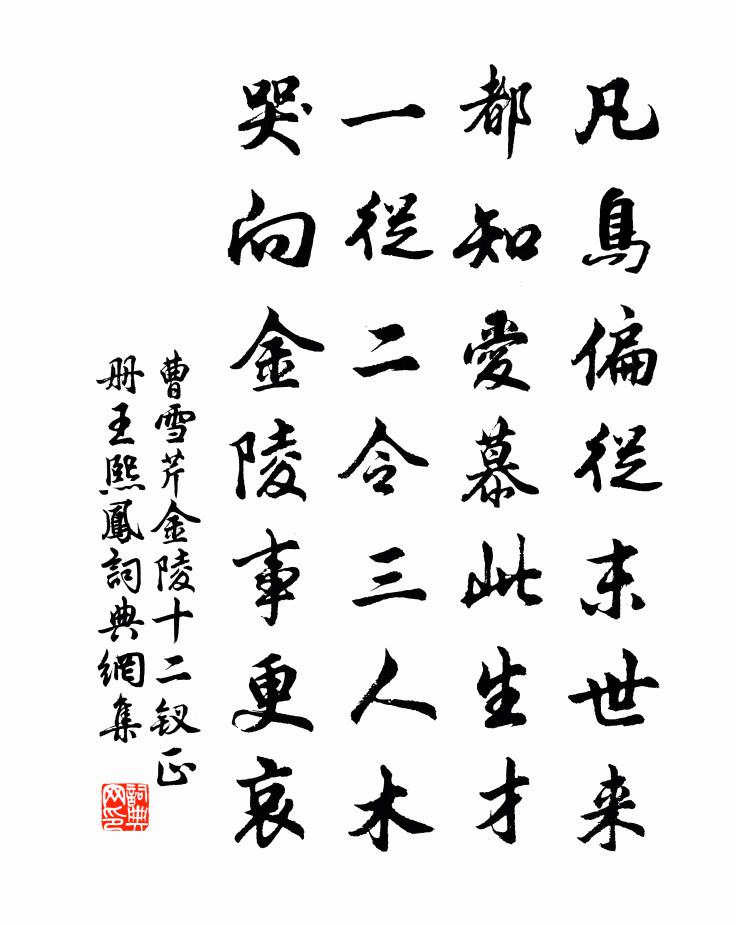 凡鳥偏從末世来
都知愛慕此生才
一從二令三人木
哭向金陵事更哀
曹雪芹金陵十二釵正
册王熙鳳詞典網集
詞典
网印